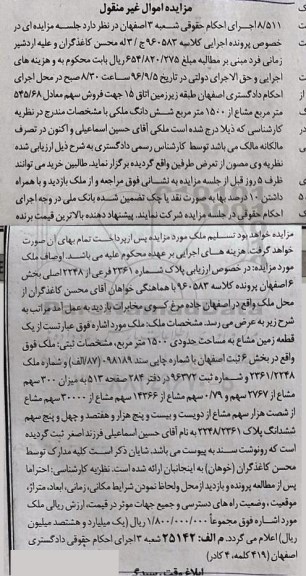 مزایده اموال غیر منقول
۸/۵۱۱ اجرای احکام حقوقی شعبه ۳ اصفهان در نظر دارد جلسه مزایده ای در
خصوص پرونده اجرایی کلاسه ۹۶۰۵۸۳ ج/۳ له محسن کاغذگران و علیه اردشیر
زمانی فرد مبنی بر مطالبه مبلغ ۶۵۴/۸۲۰/۲۷۵ ریال بابت محکوم به و هزینه های
اجرایی و حق الاجرای دولتی در تاریخ ۹۶/۹/۵ ساعت ۸/۳۰ صبح در محل اجرای
احکام دادگستری اصفهان طبقه زیرزمین اتاق ۱۵ جهت فروش سهم معادل ۵۴۵/۶۸
متر مربع مشاع از ۱۵۰۰ متر مربع شش دانگ ملکی با مشخصات مندرج در نظریه
کارشناسی که ذیلا درج شده است ملکی آقای حسین اسماعیلی و اکنون در تصرف
مالکانه مالک می باشد توسط کارشناس رسمی دادگستری به شرح ذیل ارزیابی شده
نظریه وی مصون از تعرض طرفین واقع گردیده برگزار نماید. طالبین خرید می توانند
ظرف ۵ روز قبل از جلسه مزایده به نشانی فوق مراجعه و از ملک بازدید و با همراه
داشتن ۱۰ درصد بها به صورت نقد یا چک تضمین شده بانک ملی در وجه اجرای
احکام حقوقی در جلسه مزایده شرکت نمایند. پیشنهاد دهنده بالاترین قیمت برنده
مزایده خواهد بود تسلیم ملک مورد مزایده پس از پرداخت تمام بهای آن صورت
خواهد گرفت. هزینه های اجرایی بر عهده محکوم علیه می باشد. اوصاف ملک
مورد مزایده: در خصوص ارزیابی پلاک شماره ۲۳۶۱ فرعی از ۲۲۴۸ اصلی بخش
۶ اصفهان پرونده کلاسه ۹۶۰۵۸۳ با هماهنگی خواهان آقای محسن کاغذگران از
محل ملک واقع در اصفهان جاده مرغ کوی مخابرات بازدید به عمل آمد مراتب به
شرح زیر به عرض می رسد. مشخصات ملک: ملک مورد اشاره فوق عبارتست از یک
قطعه زمین مشاع به مساحت حدودی ۱۵۰۰ متر مربع. مشخصات ثبتی: ملک فوق
واقع در بخش ۶ ثبت اصفهان با شماره چاپی سند ۰۹۸۱۸۹ (۸۷/الف) و شماره ملک
۲۳۶۱/۲۲۴۸ و شماره ثبت ۹۶۳۷۲ در دفتر ۲۸۴ صفحه ۵۱۳ به میزان ۳۰۰ سهم
مشاع از ۲۷۶۷ سهم و ۰/۷۹ سهم مشاع از ۱۴۳۶۶ سهم مشاع از ۳۰۰۰۰ سهم مشاع
از شصت هزار سهم مشاع از دویست و بیست و پنج هزار و هفتصد و چهل و پنج سهم
ششدانگ پلاک ۲۲۴۸/۲۳۶۱ به نام آقای حسین اسماعیلی فرزند اصغر ثبت گردیده
است که رونوشت سند به پیوست می باشد. شایان ذکر است کلیه مدارک توسط
محسن کاغذگران (خوهان) به اینجانبان ارائه شده است. نظریه کارشناسی: احتراما
پس از مطالعه پرونده و بازدید از محل ولحاظ نمودن شرایط مکانی، زمانی، ابعاد، متراژ،
موقعیت، وضعیت راه های دسترسی و جمیع جهات موثر در قیمت، ارزش ریالی ملک
مورد اشاره فوق مجموعاً ۱/۸۰۰/۰۰۰/۰۰۰ ریال (یک میلیارد و هشتصد میلیون
ریال) اعلام می گردد. م الف: ۲۵۱۴۲ شعبه ۳ اجرای احکام حقوقی دادگستری
اصفهان (۴۱۹ کلمه، ۴ کادر)